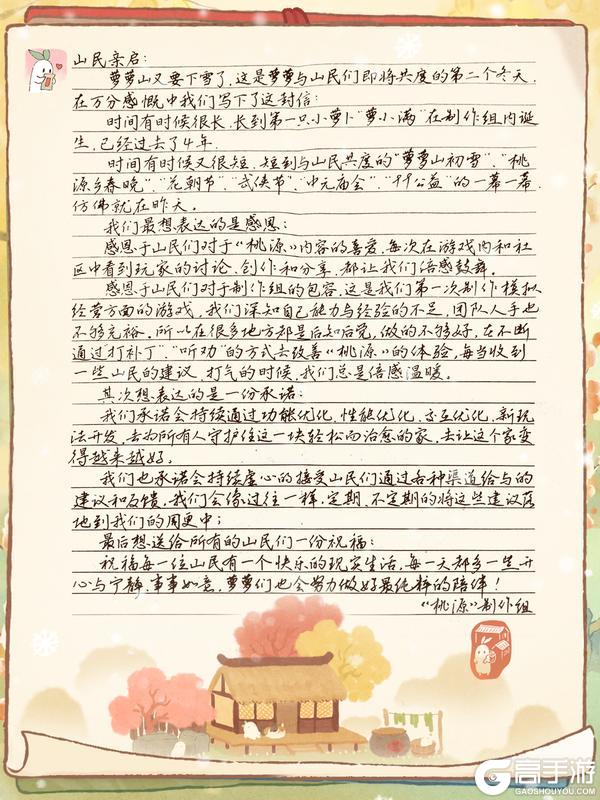 山民亲启:
萝萝山又要下雪了,这是萝萝与山民们即将共度的第二个冬天,
在万分感慨中我们写下了这封信:
时间有时候很长,长到第一只小萝卜"萝小满"在制作组内诞
生,已经过去了4年.
时间有时候又很短,短到与山民共度的"萝萝山初雪"、"桃
源乡春晚"、"花朝节"、"武侠节"、"中元庙会"、"公益"的一幕一幕,
仿佛就在昨天.
我们最想表达的是感恩:
感恩于山民们对于《桃源》内容的喜爱,每次在游戏内和社
区中看到玩家的讨论、创作和分享,都让我们倍感鼓舞.
感恩于山民们对于制作组的包容,这是我们第一次制作模拟
经营方面的游戏,我们深知自己能力与经验的不足,团队人手也
不够充裕.所以在很多地方都是后知后觉,做的不够好,在不断
通过"打补丁"、"听劝"的方式去改善《桃源》的体验,每当收到
一些山民的建议、打气的时候,我们总是倍感温暖.
其次想表达的是一份承诺:
我们承诺会持续通过功能优化、性能优化、交互优化、新玩
法开发,去为所有人守护住这一块轻松而治愈的家,去让这个家变
得越来越好.
我们也承诺会持续虚心的接受山民们通过各种渠道给与的
建议和反馈,我们会像过往一样,定期、不定期的将这些建议落
地到我们的周更中;
最后想送给所有的山民们一份祝福:
祝福每一位山民有一个快乐的现实生活,每一天都多一些开
心与宁静,事事如意,萝萝们也会努力做好最纯粹的陪伴!
《桃源》制作组
高手游
GAOSHOUYOU.COM